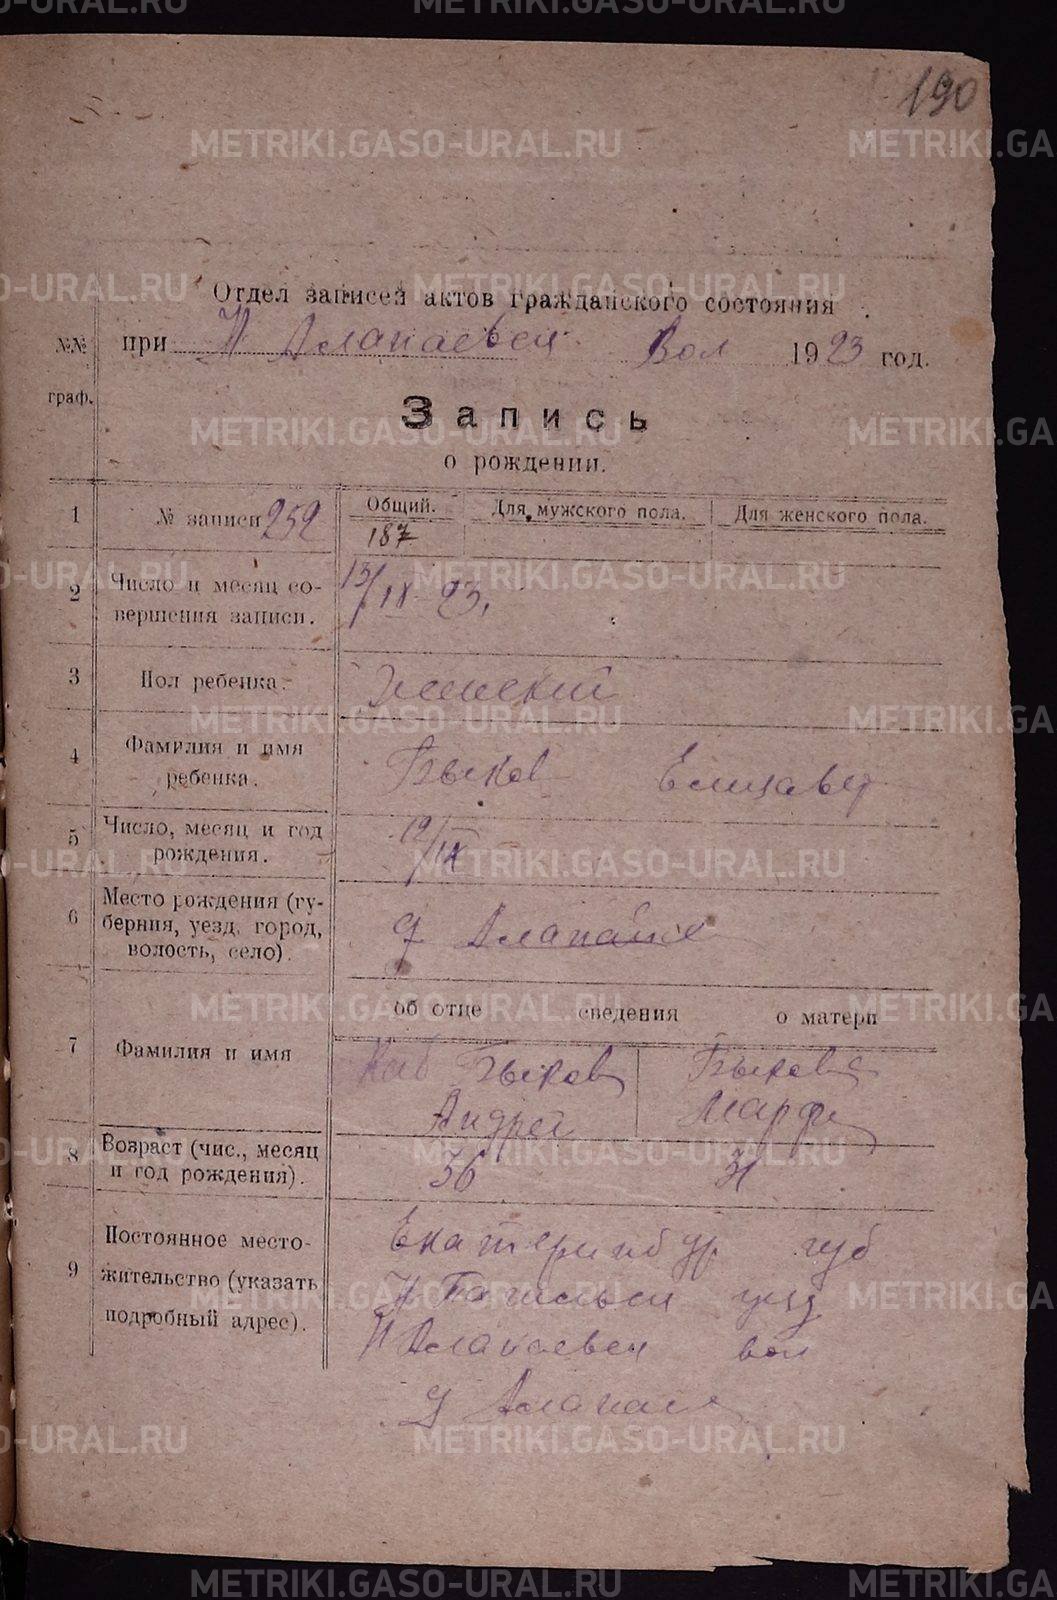 190
METRIKI.GASO-URAL.RU
Отдел записей актов гражданского состояния
№№ при Н Алапаевск. Вол 1923 год.
граф.
Запись
о рождении.
1 № записи 252 Общий. Для мужского пола. Для женского пола.
187
2 Число и месяц со-
вершения записи.
23,
3 Пол ребенка. Женский
4 Фамилия и имя
ребенка.
Быков Елизавет
5 Число, месяц и год
рождения.
19/IX
6 Место рождения (гу-
берния, уезд, город,
волость, село).
д
об отце сведения о матери
7 Фамилия и имя
Быков Быкова
Андрей Марфа
8 Возраст (чис., месяц
и год рождения).
36 31
9 Постоянное место-
жительство (указать
подробный адрес).
Екатеринбур губ
Н Тагильск уезд
Н Алапаевск вол
д